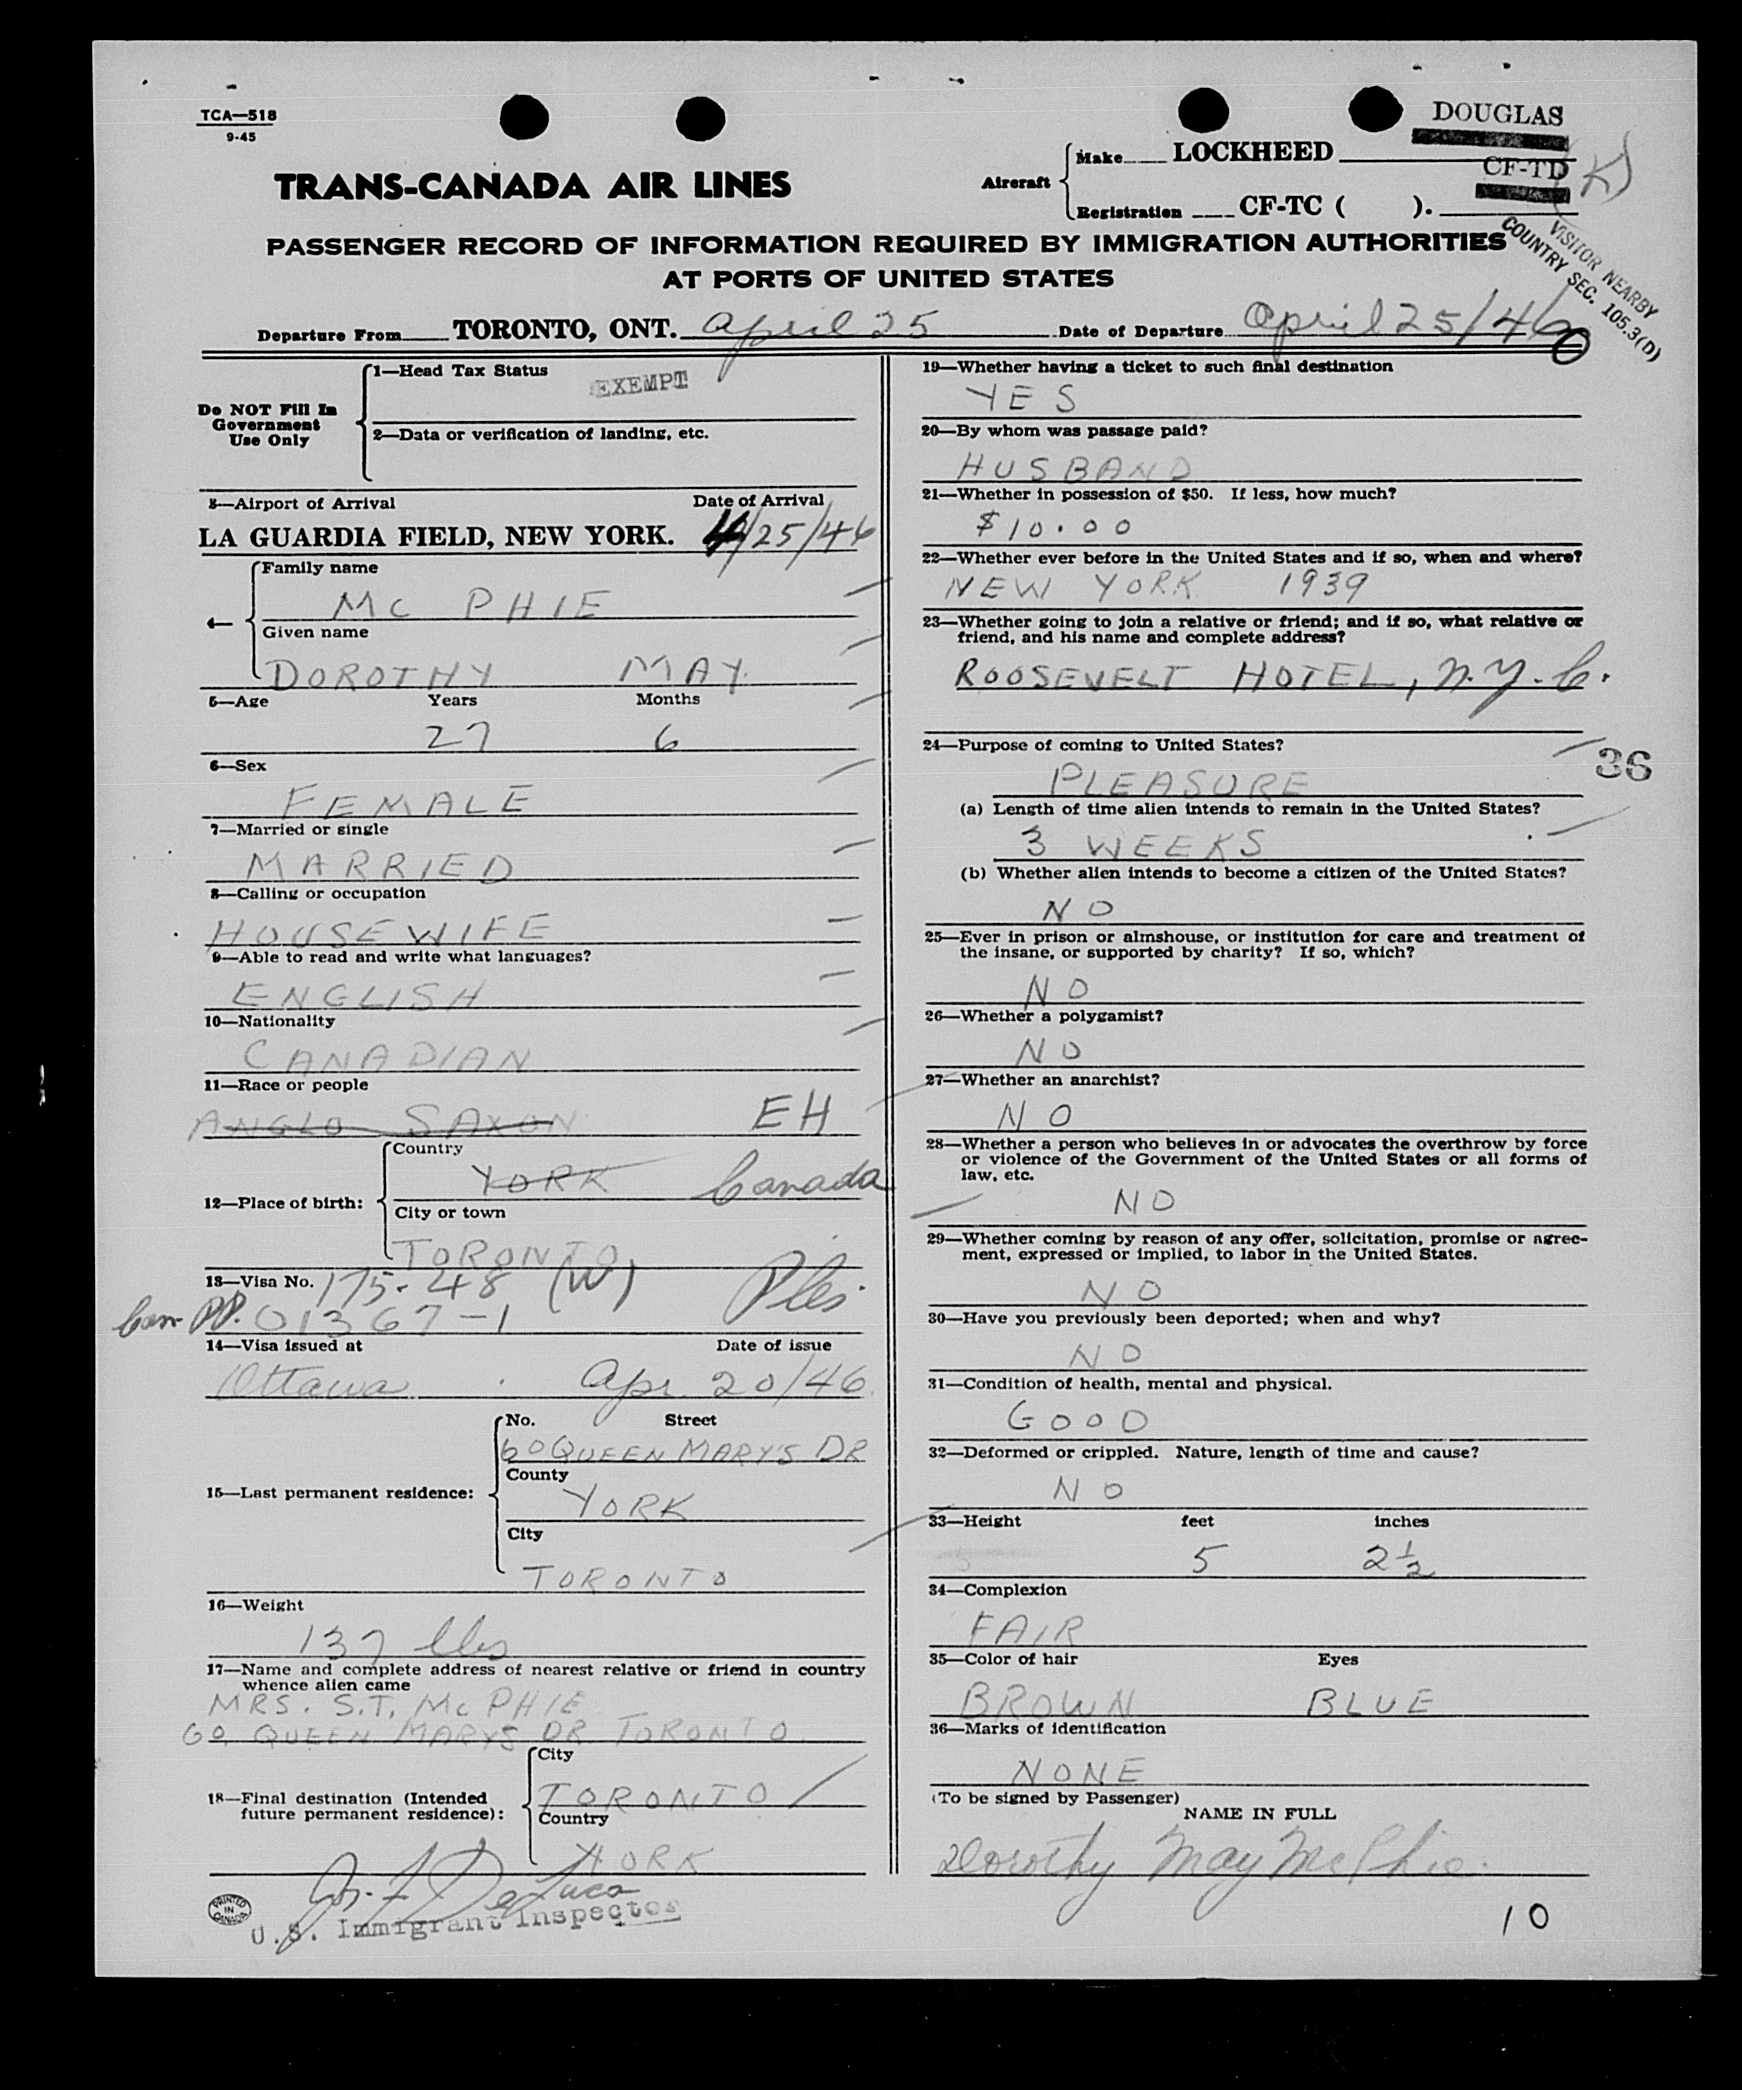 TCA—518
9-45
DOUGLAS
Aircraft
Make LOCKHEED
CF-TD (K)
Registration CF-TC ( ).
TRANS-CANADA AIR LINES
PASSENGER RECORD OF INFORMATION REQUIRED BY IMMIGRATION AUTHORITIES
AT PORTS OF UNITED STATES
VISITOR NEARBY
COUNTRY SEC. 105.3(D)
Departure From TORONTO, ONT. April 25 Date of Departure April 25/46
Do NOT Fill In
Government
Use Only
1—Head Tax Status
EXEMPT
2—Data or verification of landing, etc.
3—Airport of Arrival Date of Arrival
LA GUARDIA FIELD, NEW YORK. 4/25/46
Family name
MC PHIE
Given name
DOROTHY MAY
5—Age Years Months
27 6
6—Sex
FEMALE
7—Married or single
MARRIED
8—Calling or occupation
HOUSEWIFE
9—Able to read and write what languages?
ENGLISH
10—Nationality
CANADIAN
11—Race or people
ANGLO SAXON EH
12—Place of birth:
Country
YORK Canada
City or town
TORONTO
13—Visa No. 175-48 (W)
Can PP. 01367-1
14—Visa issued at Date of issue
Ottawa Apr. 20/46
15—Last permanent residence:
No. Street
60 QUEEN MARYS DR
County
YORK
City
TORONTO
16—Weight
137 lbs
17—Name and complete address of nearest relative or friend in country
whence alien came
MRS. S.T. McPHIE
60 QUEEN MARYS DR TORONTO
18—Final destination (Intended
future permanent residence):
City
TORONTO
Country
YORK
Jos. F. DeLuca
U.S. Immigrant Inspector
PRINTED
IN
CANADA
19—Whether having a ticket to such final destination
YES
20—By whom was passage paid?
HUSBAND
21—Whether in possession of $50. If less, how much?
$10.00
22—Whether ever before in the United States and if so, when and where?
NEW YORK 1939
23—Whether going to join a relative or friend; and if so, what relative or
friend, and his name and complete address?
ROOSEVELT HOTEL, N.Y.C.
24—Purpose of coming to United States?
36
PLEASURE
(a) Length of time alien intends to remain in the United States?
3 WEEKS
(b) Whether alien intends to become a citizen of the United States?
NO
25—Ever in prison or almshouse, or institution for care and treatment of
the insane, or supported by charity? If so, which?
NO
26—Whether a polygamist?
NO
27—Whether an anarchist?
NO
28—Whether a person who believes in or advocates the overthrow by force
or violence of the Government of the United States or all forms of
law, etc.
NO
29—Whether coming by reason of any offer, solicitation, promise or agree-
ment, expressed or implied, to labor in the United States.
NO
30—Have you previously been deported; when and why?
NO
31—Condition of health, mental and physical.
GOOD
32—Deformed or crippled. Nature, length of time and cause?
NO
33—Height feet inches
5 2½
34—Complexion
FAIR
35—Color of hair Eyes
BROWN BLUE
36—Marks of identification
NONE
(To be signed by Passenger)
NAME IN FULL
Dorothy May McPhie
10